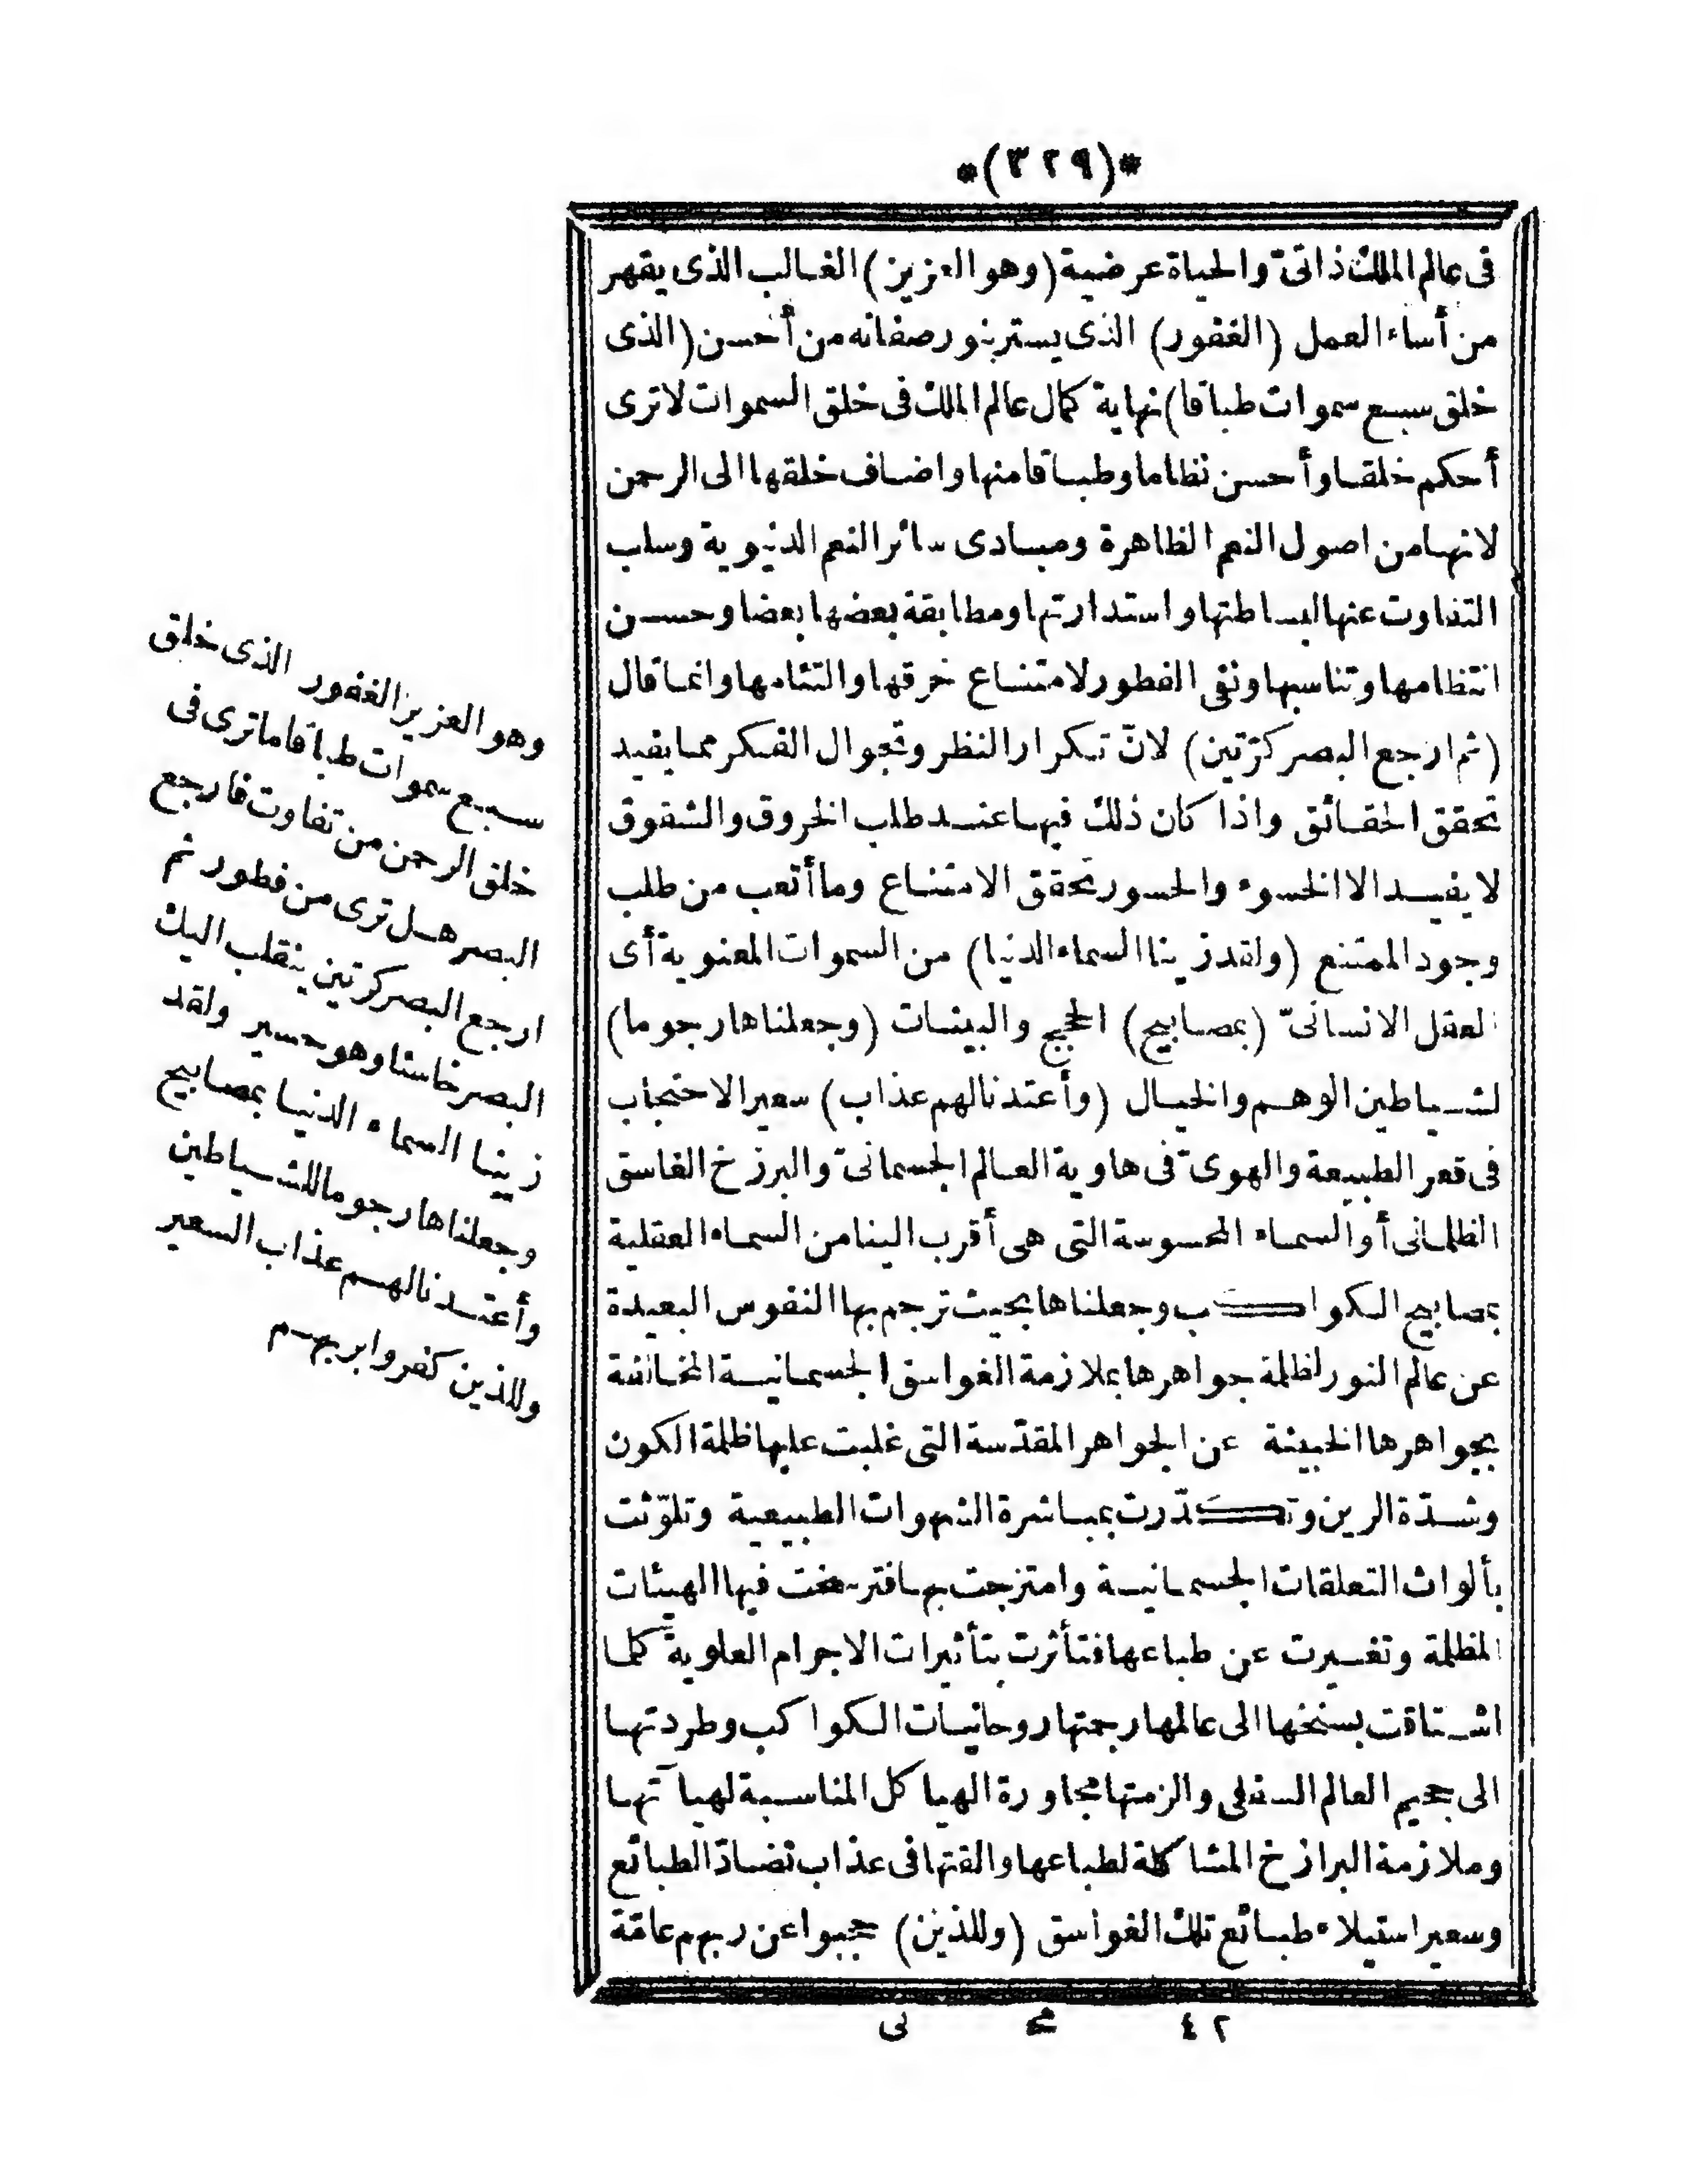 *(٣٢٩)*
فى عالم الملك ذاتىّ والحياة عرضية (وهو العزيز) الغالب الذى يقهر
من أساء العمل (الغفور) الذى يستر بنور صفاته من أحسن (الذى
خلق سبع سموات طباقا) نهاية كمال عالم الملك فى خلق السموات لاترى
أحكم خلقا وأحسن نظاما وطباقا منها واضاف خلقها الى الرحمن
لانها من اصول النعم الظاهرة ومبادى سائر النعم الدنيوية وسلب
التفاوت عنها لبساطتها واستدارتها ومطابقة بعضها بعضا وحسن
انتظامها وتناسبها ونفى الفطور لامتناع خرقها والتئامها وانما قال
(ثم ارجع البصر كرّتين) لانّ تكرار النظر وتجوال الفكر مما يفيد
تحقق الحقائق واذا كان ذلك فيها عند طلب الخروق والشقوق
لا يفيد الا الخسوء والحسور تحقق الامتناع وما أتعب من طلب
وجود الممتنع (ولقد زينا السماء الدنيا) من السموات المعنوية أى
العقل الانسانىّ (بمصابيح) الحجج والبينات (وجعلناها رجوما)
لشياطين الوهم والخيال (وأعتدنا لهم عذاب) سعير الاحتجاب
فى قعر الطبيعة والهوىّ فى هاوية العالم الجسمانىّ والبرزخ الغاسق
الظلمانى أو السماء المحسوسة التى هى أقرب الينا من السماء العقلية
بمصابيح الكواكب وجعلناها بحيث ترجم بها النفوس البعيدة
عن عالم النور لظلمة جواهرها بملازمة الغواسق الجسمانية المخالفة
بجواهرها الخبيثة عن الجواهر المقدّسة التى غلبت عليها ظلمة الكون
وشدّة الرين وتكدّرت بمباشرة الشهوات الطبيعية وتلوّثت
بألواث التعلقات الجسمانية وامتزجت بها فترسخت فيها الهيئات
المظلمة وتغيرت عن طباعها فتأثرت بتأثيرات الاجرام العلوية كلما
اشتاقت بسنخها الى عالمها رجمتها روحانيات الكواكب وطردتها
الى جحيم العالم السفلى والزمتها مجاورة الهياكل المناسبة لهيآتها
وملازمة البرازخ المشاكلة لطباعها والقتها فى عذاب تضادّ الطبائع
وسعير استيلاء طبائع تلك الغواسق (وللذين) حجبوا عن ربهم عامّة
وهو العزيز الغفور الذى خلق
سبع سموات طباقا ماترى فى
خلق الرحمن من تفاوت فارجع
البصر هل ترى من فطور ثم
ارجع البصر كرتين ينقلب اليك
البصر خاسئا وهو حسير ولقد
زينا السماء الدنيا بمصابيح
وجعلناها رجوما للشياطين
وأعتدنا لهم عذاب السعير
وللذين كفروا بربهم
٤٢ مح نى